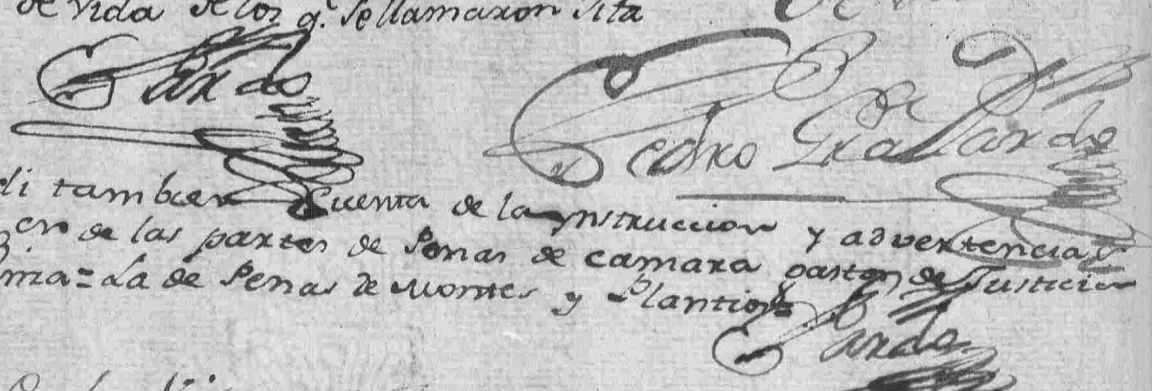 de vida de los q.e se llamaron sita
Pardo
Pedro Gra Pardo
di tambien Cuenta de la ynstruccion y advertencias
en de las partes de Penas de camara gastos de Justicia
nia = La de Penas de Montes y Plantios
Pardo